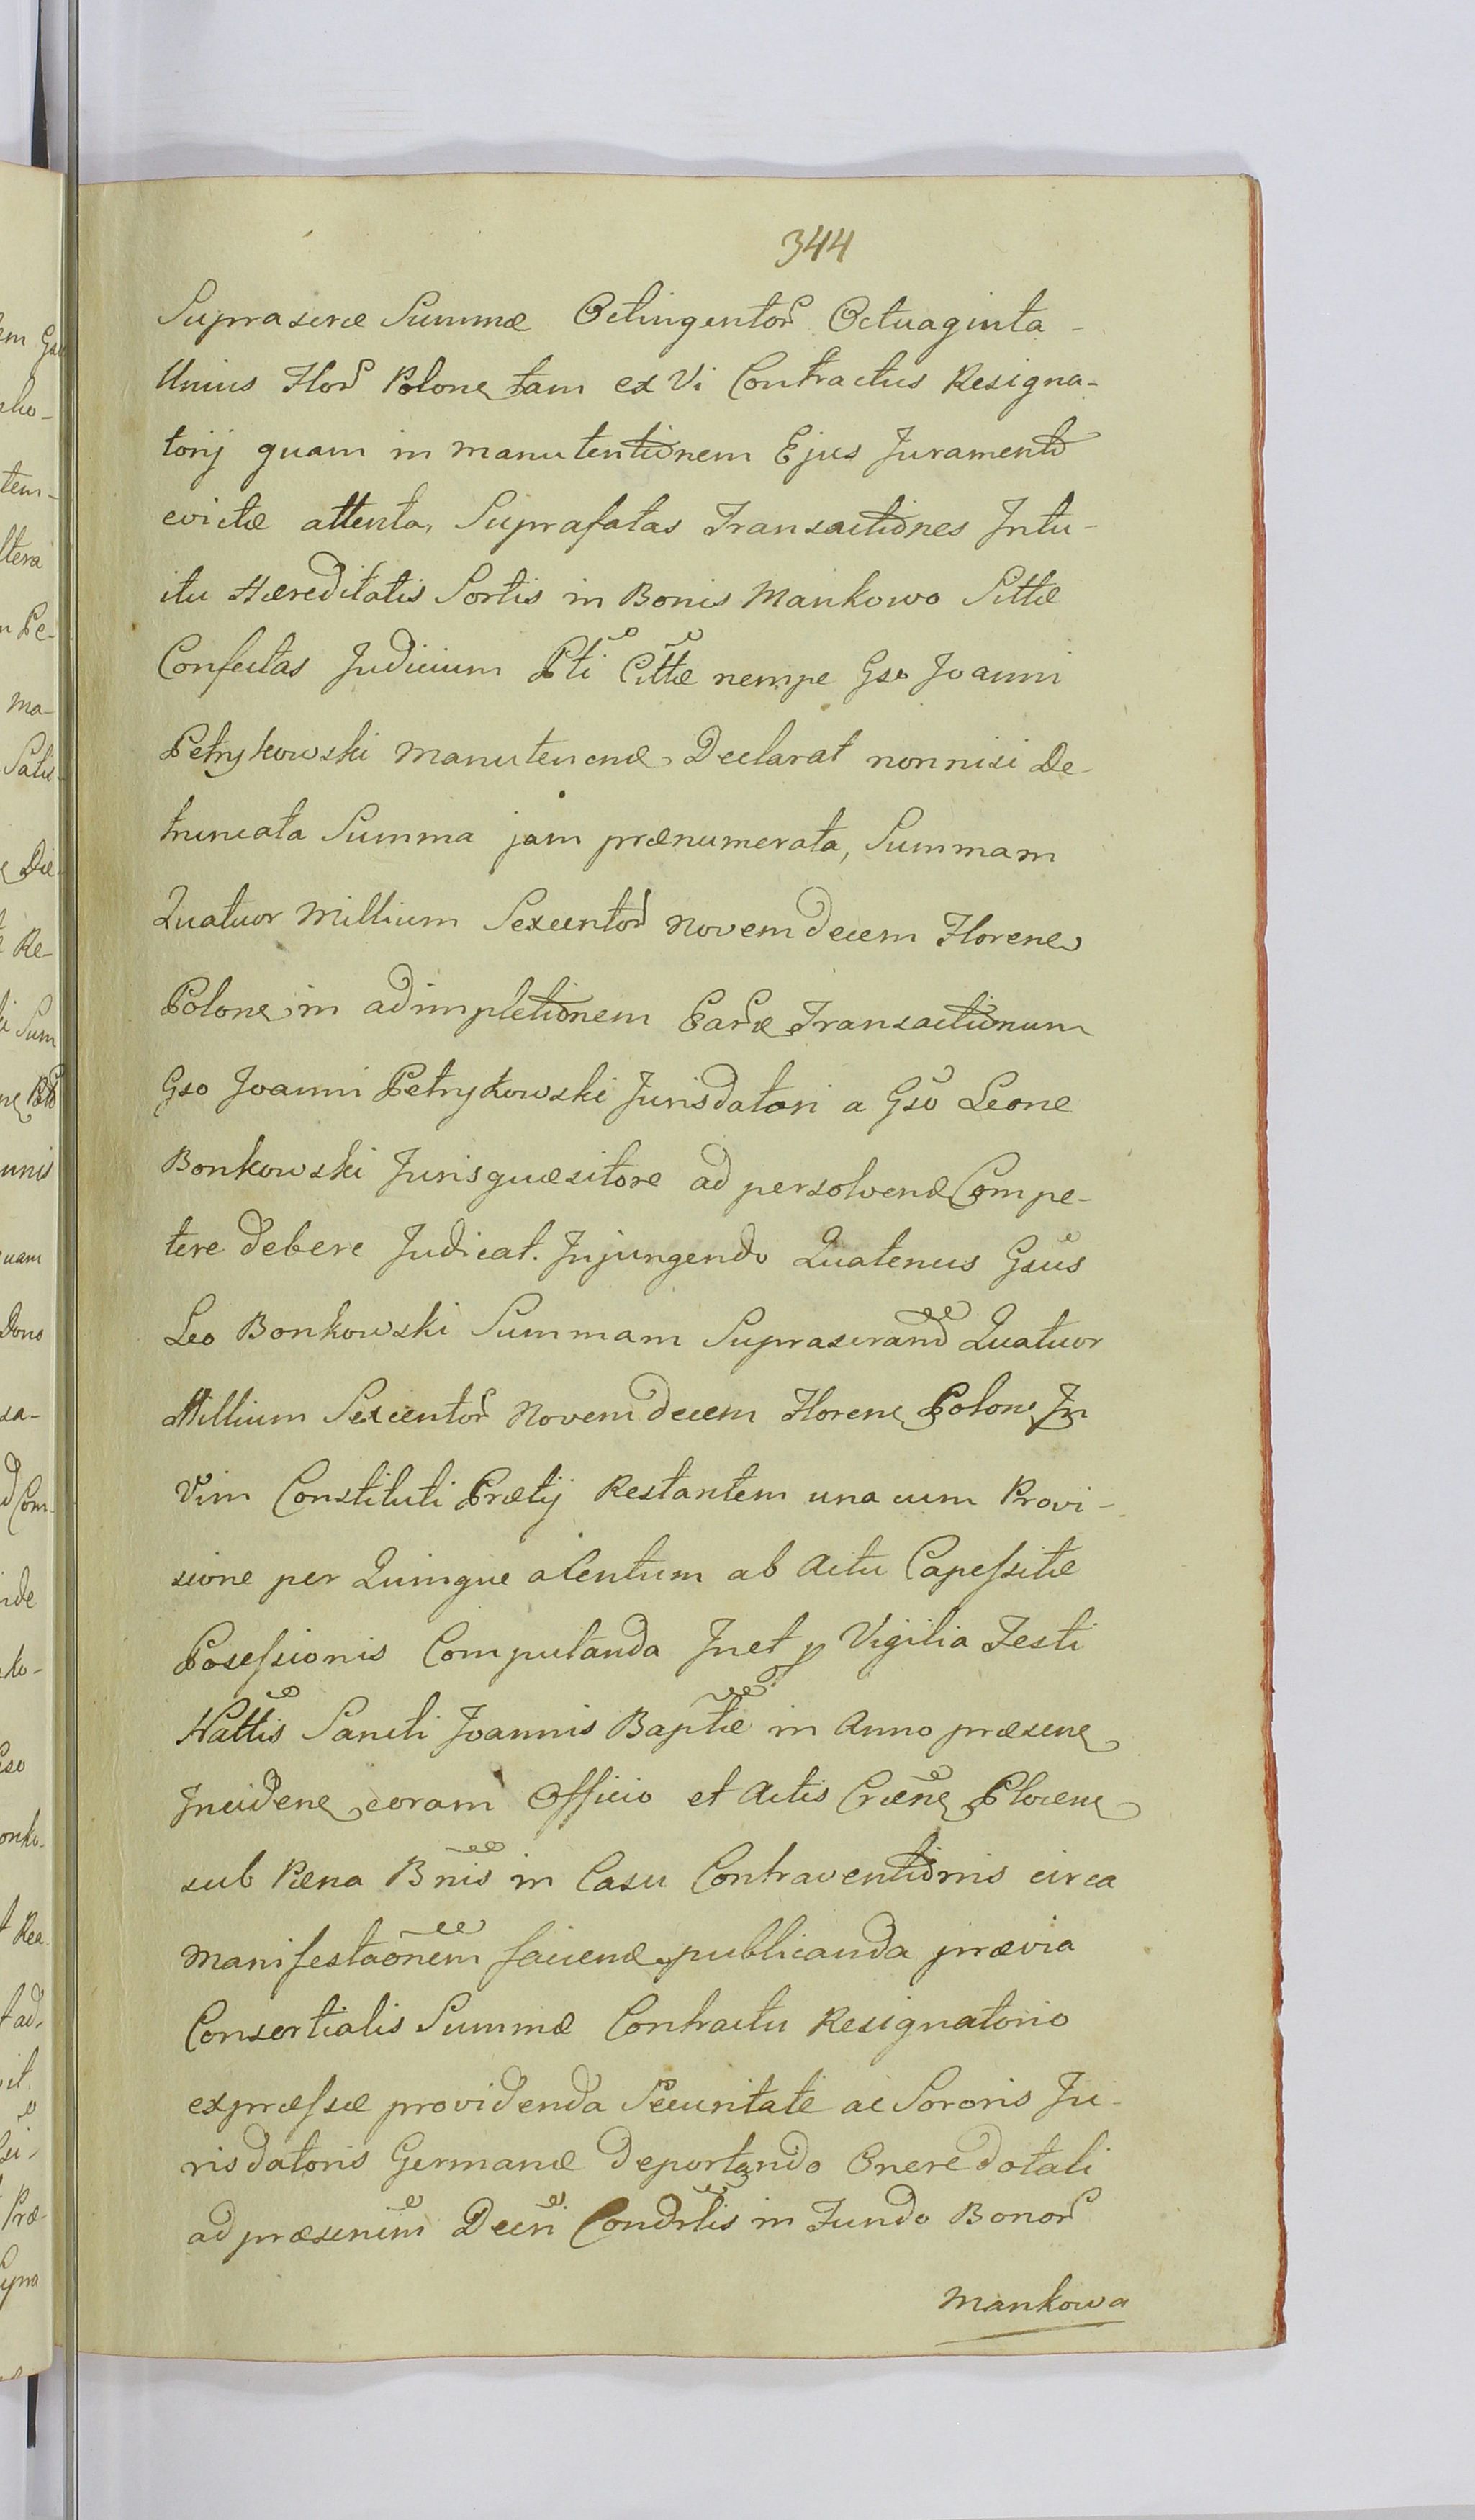 344
Suprascræ Summæ Octingentor Octuaginta -
Unius Flor Polone tam ex Vi Contractus Resigna-
torij quam in manutentionem Ejus Juramento
evictæ attenta, Suprafatas Transactiones Intu-
itu Hæreditatis Sortis in Bonis Mankowo Sittæ
Confectas Judicium Pti Cittæ nempe Gso Joanni
Petrykowski manutenenæ Declarat nonnisi De-
truncata Summa jam prænumerata, Summam
Quatuor Millium Sexcentor Novemdecem Florene
Polone in adimpletionem Paræ Transactionum
Gso Joanni Petrykowski Jurisdatori a Gso Leone
Bonkowski Jurisquæsitore ad persolvenæ Compe-
tere debere Judicat. Injungendo Quatenus Gsus
Leo Bonkowski Summam Suprascrand Quatuor
Millium Sexcentor Novemdecem Florene Polone In
Vim Constituti Prætij Restantem una cum Provi-
sione per Quinque a Centum ab Actu Capessitæ
Posessionis Computanda Inet p Vigilia Festi
Nattis Sancti Joannis Baptæ in Anno præsene
Incidene coram Officio et Actis Cræne Plocene
sub Pæna Bnis in Casu Contraventionis circa
manifestaonem faciene publicanda prævia
Consortialis Summæ Contractu Resignatorio
expræssæ providenda Securitate ac Sororis Ju-
risdatoris Germanæ deportando Onere dotali
ad præsenim Decri Condrlis in Fundo Bonor
Mankowa